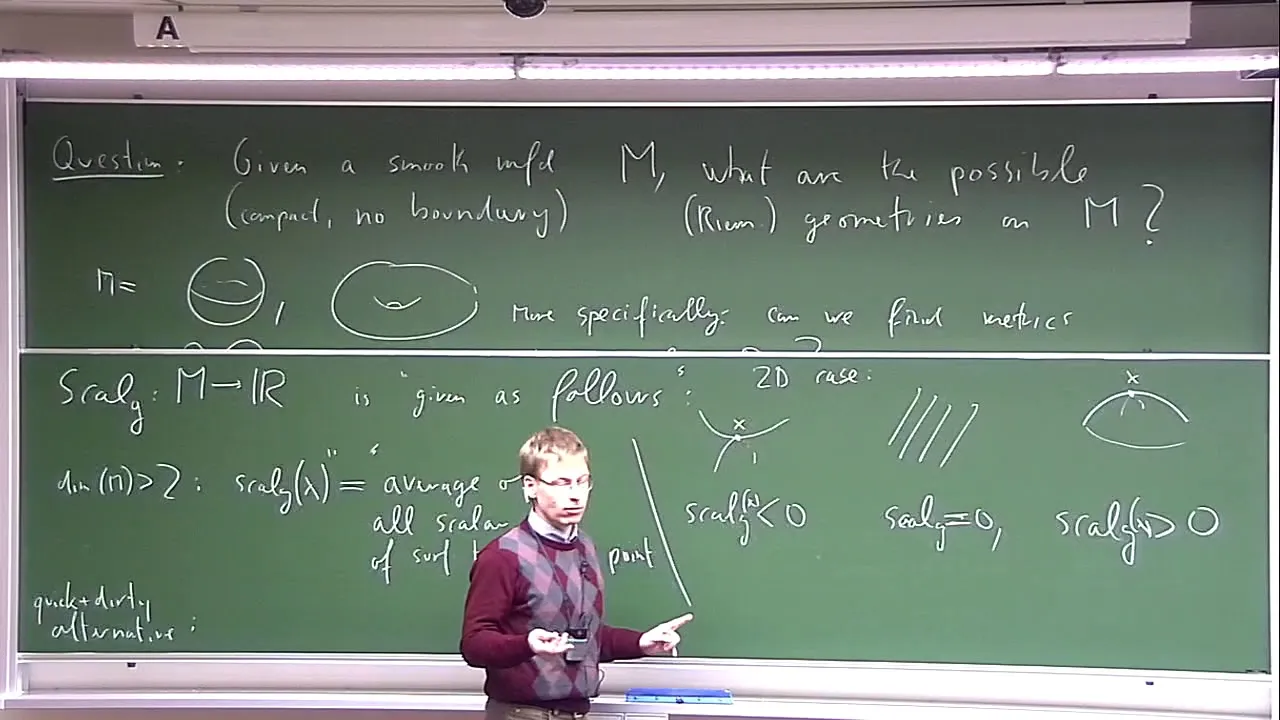 A
Question: Given a smooth mfd M, what are the possible
(compact, no boundary) (Riem.) geometries on M?
M = , More specifically: can we find metrics
Scal_g: M → ℝ is "given as follows": 2D case:
x x
dim(M) > 2: "scal_g(x)" = "average o
all scalar
of surf point
scal_g(x) < 0 scal_g = 0, scal_g(x) > 0
quick + dirty
alternative: